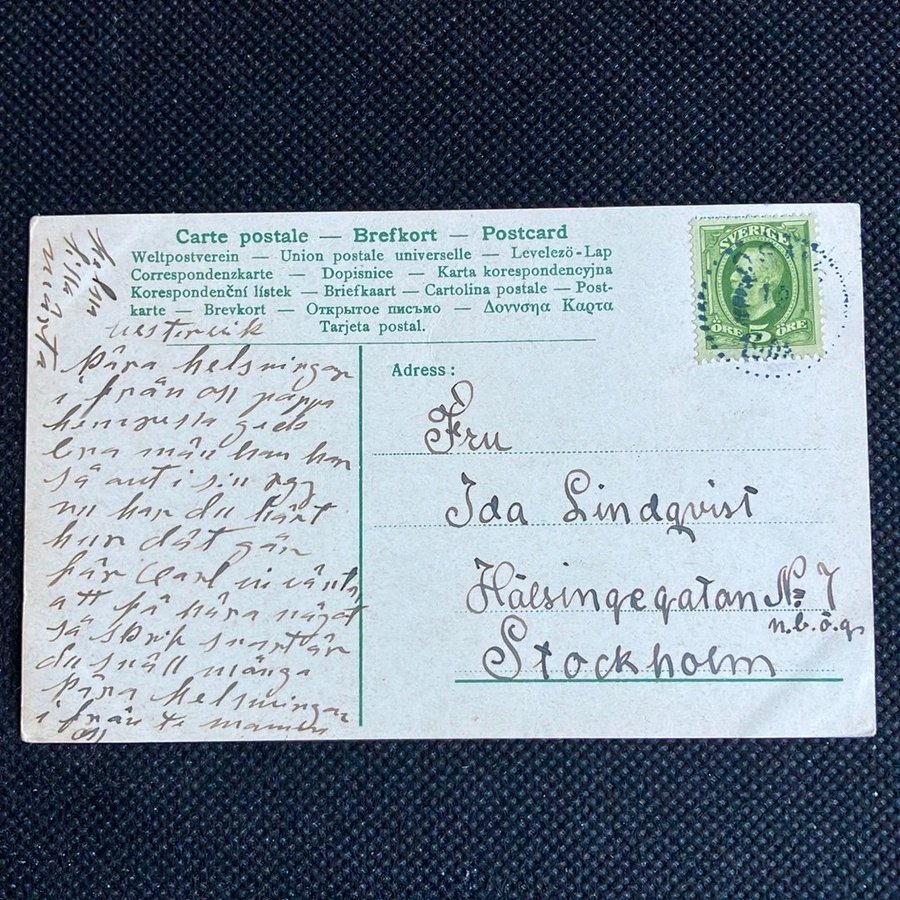 Carte postale — Brefkort — Postcard
Weltpostverein — Union postale universelle — Levelező-Lap
Correspondenzkarte — Dopisnice — Karta korespondencyjna
Korespondenční lístek — Briefkaart — Cartolina postale — Post-
karte — Brevkort — Открытое письмо — Δοννσηα Καρτα
Tarjeta postal.
SVERIGE
ÖRE 5 ÖRE
Adress:
Fru
Ida Lindqvist
Hälsingegatan No 7
n.b.ö.g.
Stockholm
lilla
Märta
västervik
kära helsningar
i från oss pappa
män han har
så ont i sin rygg
nu har du hört
hur dät går
här Carl vi vänta
att få höra något
så skrik snart är
du snäll många
kära helsningar
i från
oss